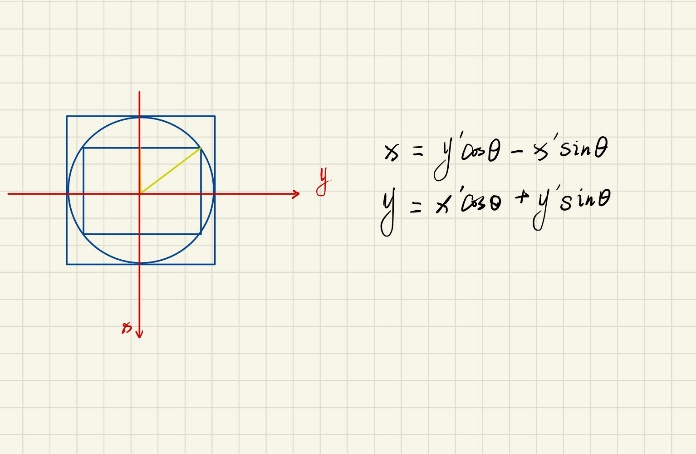 x = y'cosθ - x'sinθ
y
y = x'cosθ + y'sinθ
x